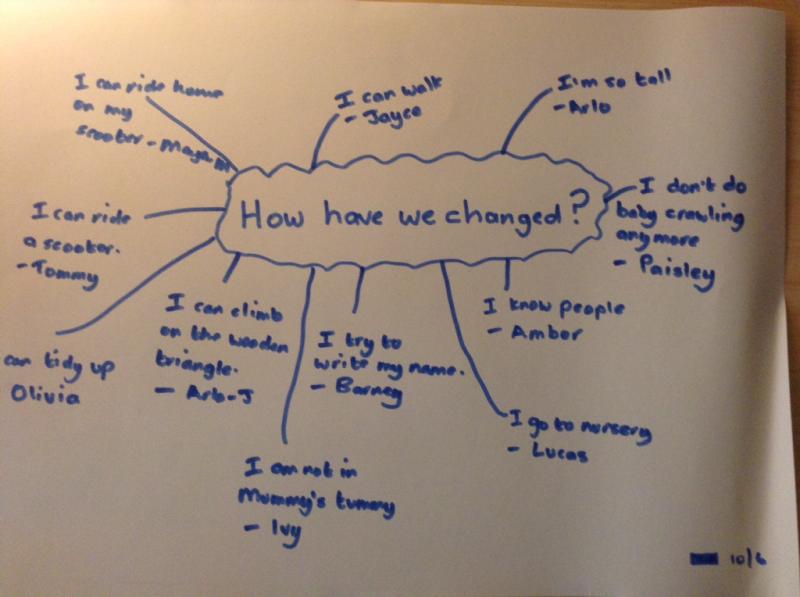 I can ride home
on my
scooter - Maya M
I can walk
- Jayce
I'm so tall
- Arlo
How have we changed?
I don't do
baby crawling
anymore
- Paisley
I can ride
a scooter.
- Tommy
can tidy up
Olivia
I can climb
on the wooden
triangle.
- Arlo-J
I am not in
Mummy's tummy
- Ivy
I try to
write my name.
- Barney
I know people
- Amber
I go to nursery
- Lucas
10/6